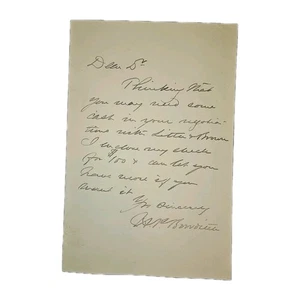 Dear Dr
Thinking that
you may need some
cash in your negotia-
tions with & Brown
I enclose my check
for 100 & can let you
have more if you
want it
Yrs Sincerely